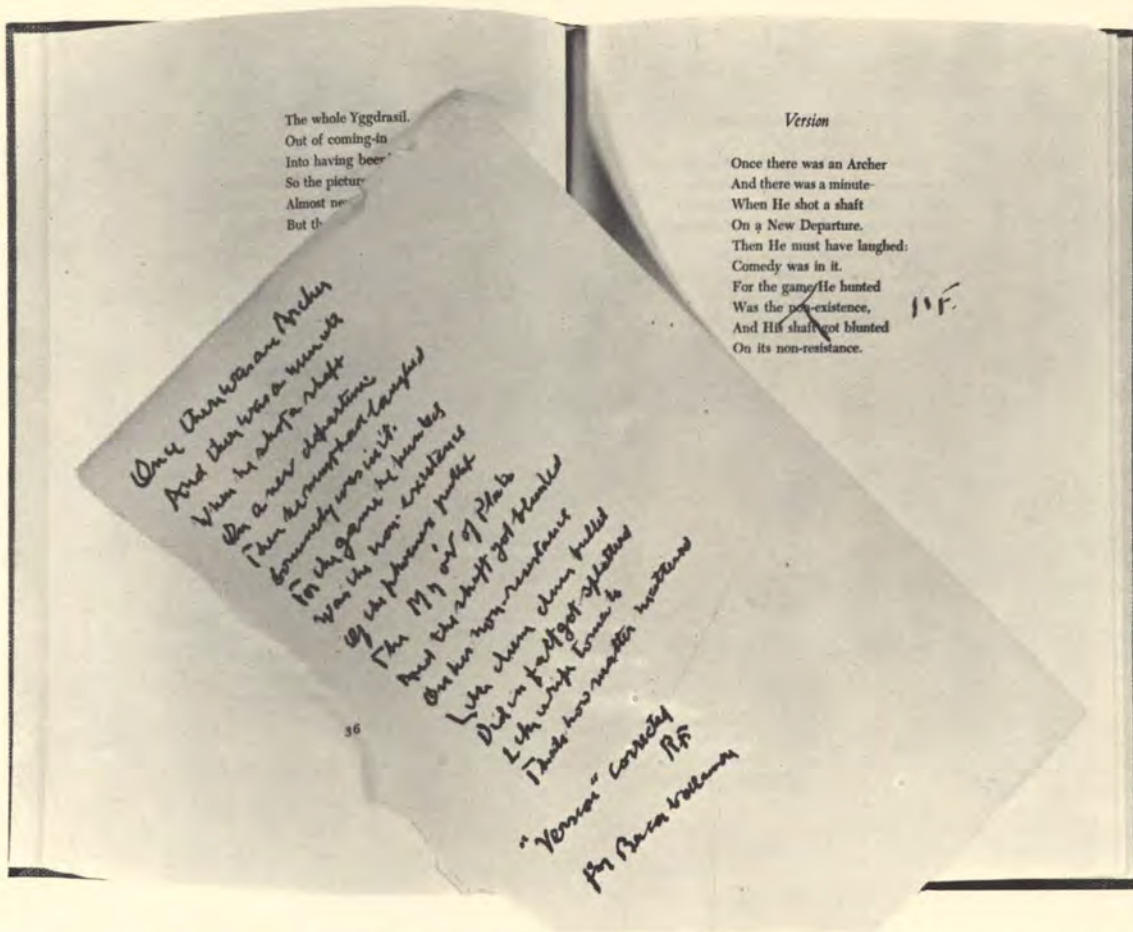 The whole Yggdrasil.
Out of coming-in
Into having been
So the picture
Almost
But
36
Version
Once there was an Archer
And there was a minute
When He shot a shaft
On a New Departure.
Then He must have laughed:
Comedy was in it.
For the game He hunted
Was the non-existence,
And His shaft got blunted
On its non-resistance.
Once there was an Archer
And there was a minute
When he shot a shaft
On a new departure
Then he must have laughed
Comedy was in it.
For the game he hunted
Was the non-existence
Of the phoenix pullet
The Μὴ ὄν of Plato
And the shaft got blunted
On her non-resistance
Like
Did in fact get splattered
Like a ripe tomato
That's how matter mattered
"Version" corrected
R.F.
for